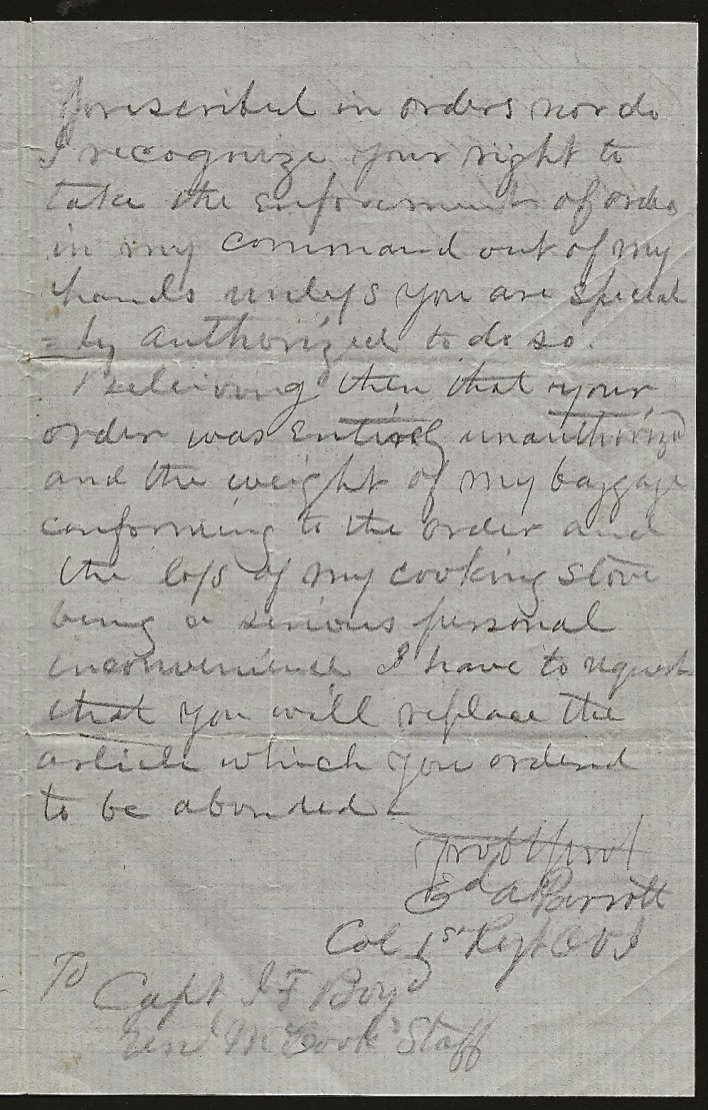 prescribed in orders nor do
I recognize your right to
take the enforcements of orders
in my command out of my
hands unless you are special
=ly authorized to do so.
Believing then that your
order was entirely unauthorized
and the weight of my baggage
conforming to the order and
the loss of my cooking stove
being a serious personal
inconvenience I have to request
that you will replace the
article which you ordered
to be abonded -
Ed A Parrott
Col 1st Regt O V I
To Capt J F Boyd
Genl McCook's Staff